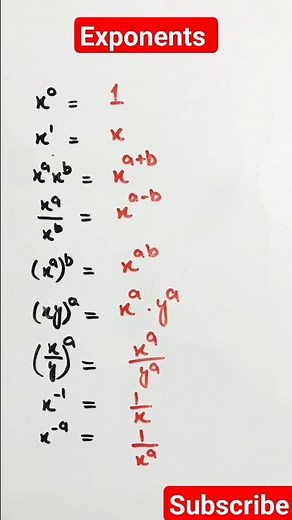 Exponents
x⁰ = 1
x¹ = x
xᵃxᵇ = xᵃ⁺ᵇ
xᵃ/xᵇ = xᵃ⁻ᵇ
(xᵃ)ᵇ = xᵃᵇ
(xy)ᵃ = xᵃ · yᵃ
(x/y)ᵃ = xᵃ/yᵃ
x⁻¹ = 1/x
x⁻ᵃ = 1/xᵃ
Subscribe